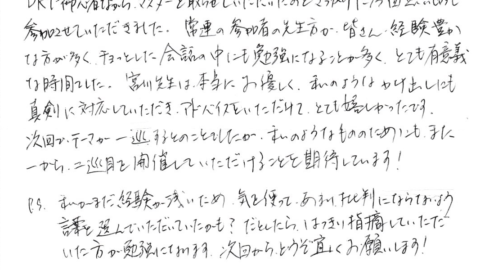 参加させていただきました。常連の参加者の先生方が、皆さん、経験豊か
な方が多く、チョットした会話の中にも勉強になることが多く、とても有意義
な時間でした。宮川先生は、本当にお優しく、私のようなかけ出しにも
真剣に対応していただき、アドバイスをいただけて、とても嬉しかったです。
次回で、テーマが一巡するとのことでしたが、私のようなもののためにも、また
一から、二巡目を開催していただけることを期待しています！
P.S. 私がまだ経験が浅いため、気を使って、あまり批判にならないよう
言葉を選んでいただいていたかも？だとしたら、はっきり指摘していただ
いた方が勉強になります。次回から、どうぞ宜しくお願いします！